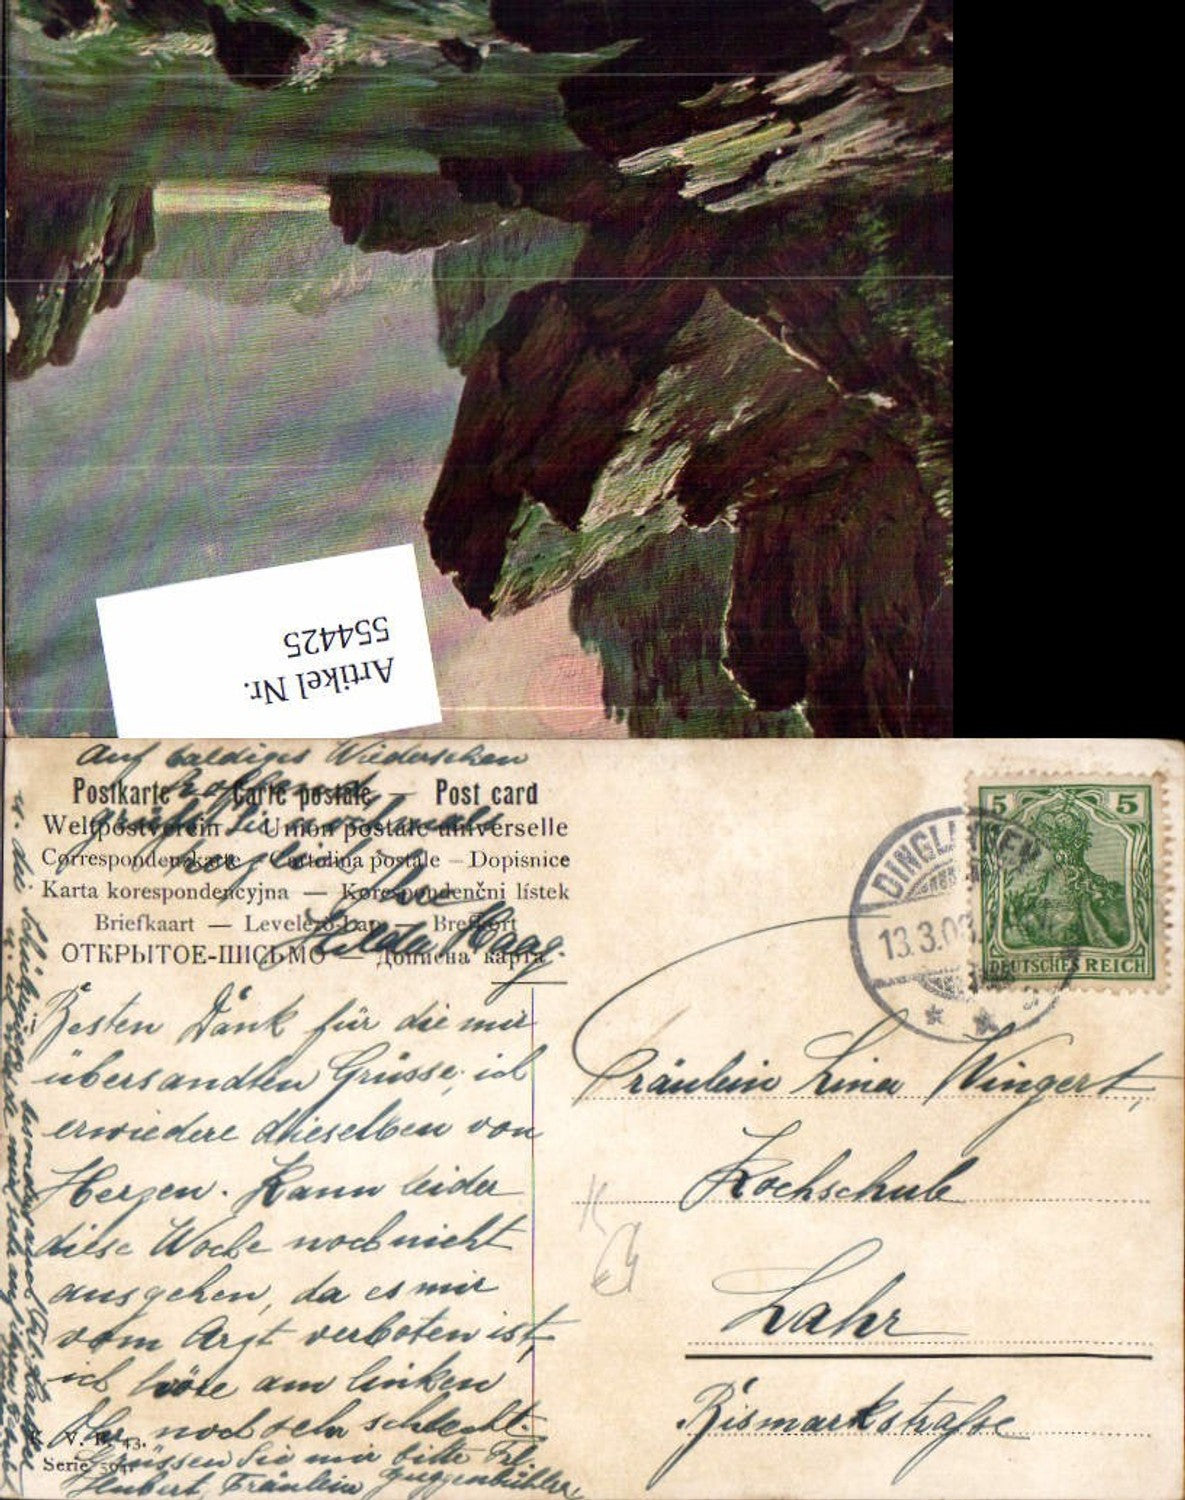 Artikel Nr.
554425
Auf baldiges Wiedersehen
Postkarte — Carte postale — Post card
Weltpostverein — Union postale universelle
Correspondenzkarte — Cartolina postale — Dopisnice
Karta korespondencyjna — Korespondenční lístek
Briefkaart — Levelező-Lap — Brefkort
ОТКРЫТОЕ-ПИСЬМО — Дописна карта.
Hilda Haag.
Besten Dank für die mir
übersandten Grüsse, ich
erwiedere dieselben von
Herzen. Kann leider
diese Woche noch nicht
ausgehen, da es mir
vom Arzt verboten ist,
ich höre am linken
Ohr noch sehr schlecht.
Grüssen Sie mir bitte Frl.
Hubert, Fräulein Guggenbühler
Serie
5 5
DEUTSCHES REICH
DINGLINGEN
13.3.0
Fräulein Lina Wingert,
Kochschule
Lahr
Bismarkstraße